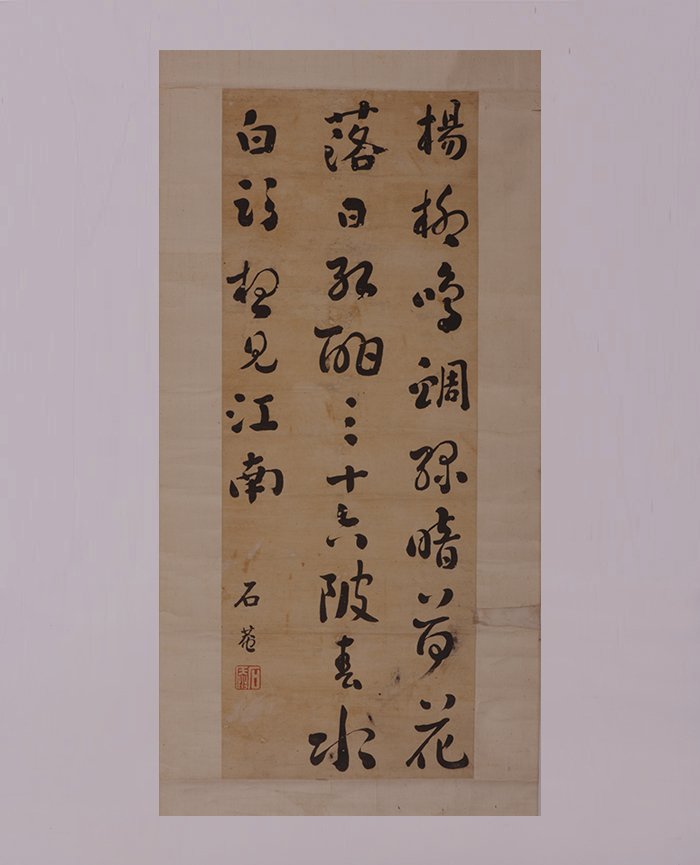 楊柳鳴蜩綠暗荷花
落日紅酣三十六陂春水
白頭想見江南
石菴